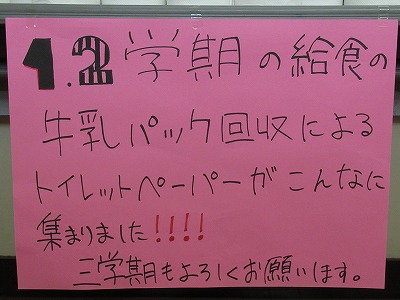 1.2学期の給食の
牛乳パック回収による
トイレットペーパーがこんなに
集まりました!!!!
三学期もよろしくお願います。